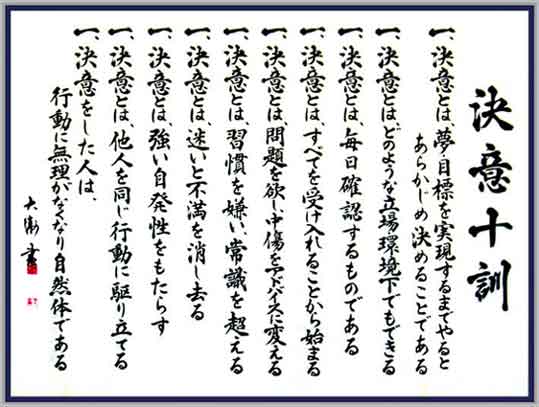 決意十訓
一、決意とは、夢・目標を実現するまでやると
あらかじめ決めることである
一、決意とは、どのような立場環境下でもできる
一、決意とは、毎日確認するものである
一、決意とは、すべてを受け入れることから始まる
一、決意とは、問題を欲し、中傷をアドバイスに変える
一、決意とは、習慣を嫌い、常識を超える
一、決意とは、迷いと不満を消し去る
一、決意とは、強い自発性をもたらす
一、決意とは、他人を同じ行動に駆り立てる
一、決意をした人は、
行動に無理がなくなり自然体である